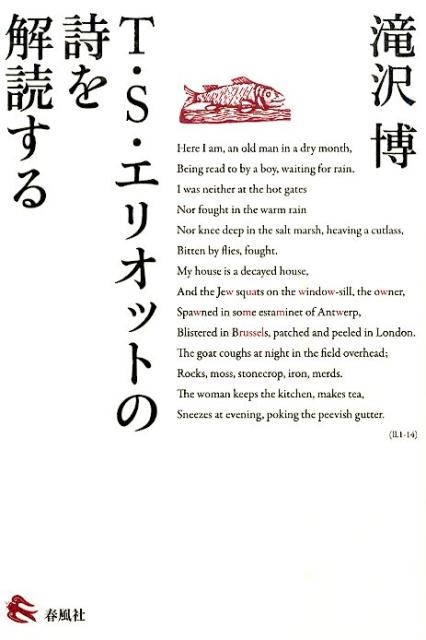 滝沢 博
T・S・エリオットの
詩を
解読する
Here I am, an old man in a dry month,
Being read to by a boy, waiting for rain.
I was neither at the hot gates
Nor fought in the warm rain
Nor knee deep in the salt marsh, heaving a cutlass,
Bitten by flies, fought.
My house is a decayed house,
And the Jew squats on the window-sill, the owner,
Spawned in some estaminet of Antwerp,
Blistered in Brussels, patched and peeled in London.
The goat coughs at night in the field overhead;
Rocks, moss, stonecrop, iron, merds.
The woman keeps the kitchen, makes tea,
Sneezes at evening, poking the peevish gutter.
(ll.1-14)
春風社